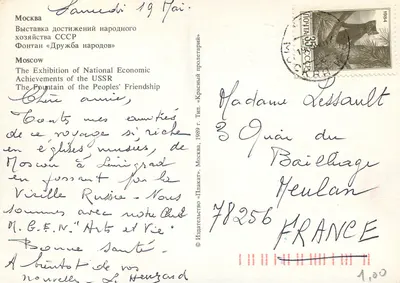 Samedi 19 Mai.
Москва
Выставка достижений народного
хозяйства СССР
Фонтан «Дружба народов»
Moscow
The Exhibition of National Economic
Achievements of the USSR
The Fountain of the Peoples' Friendship
Chère amie,
Toutes mes amitiés
de ce voyage si riche
en églises, musées, de
Moscou à Léningrad
en passant par la
Vieille Russie - Nous
sommes avec notre Club
M.G.E.N. "Arts et Vie"
Bonne santé.
A bientôt de vos
nouvelles -
© Издательство «Плакат». Москва. 1989 г. Тип. «Красный пролетарий»
1984
ПОЧТА СССР
МОСКВА
Madame Lessault
3 Quai du
Bailliage
Meulan
78256
FRANCE
1,00